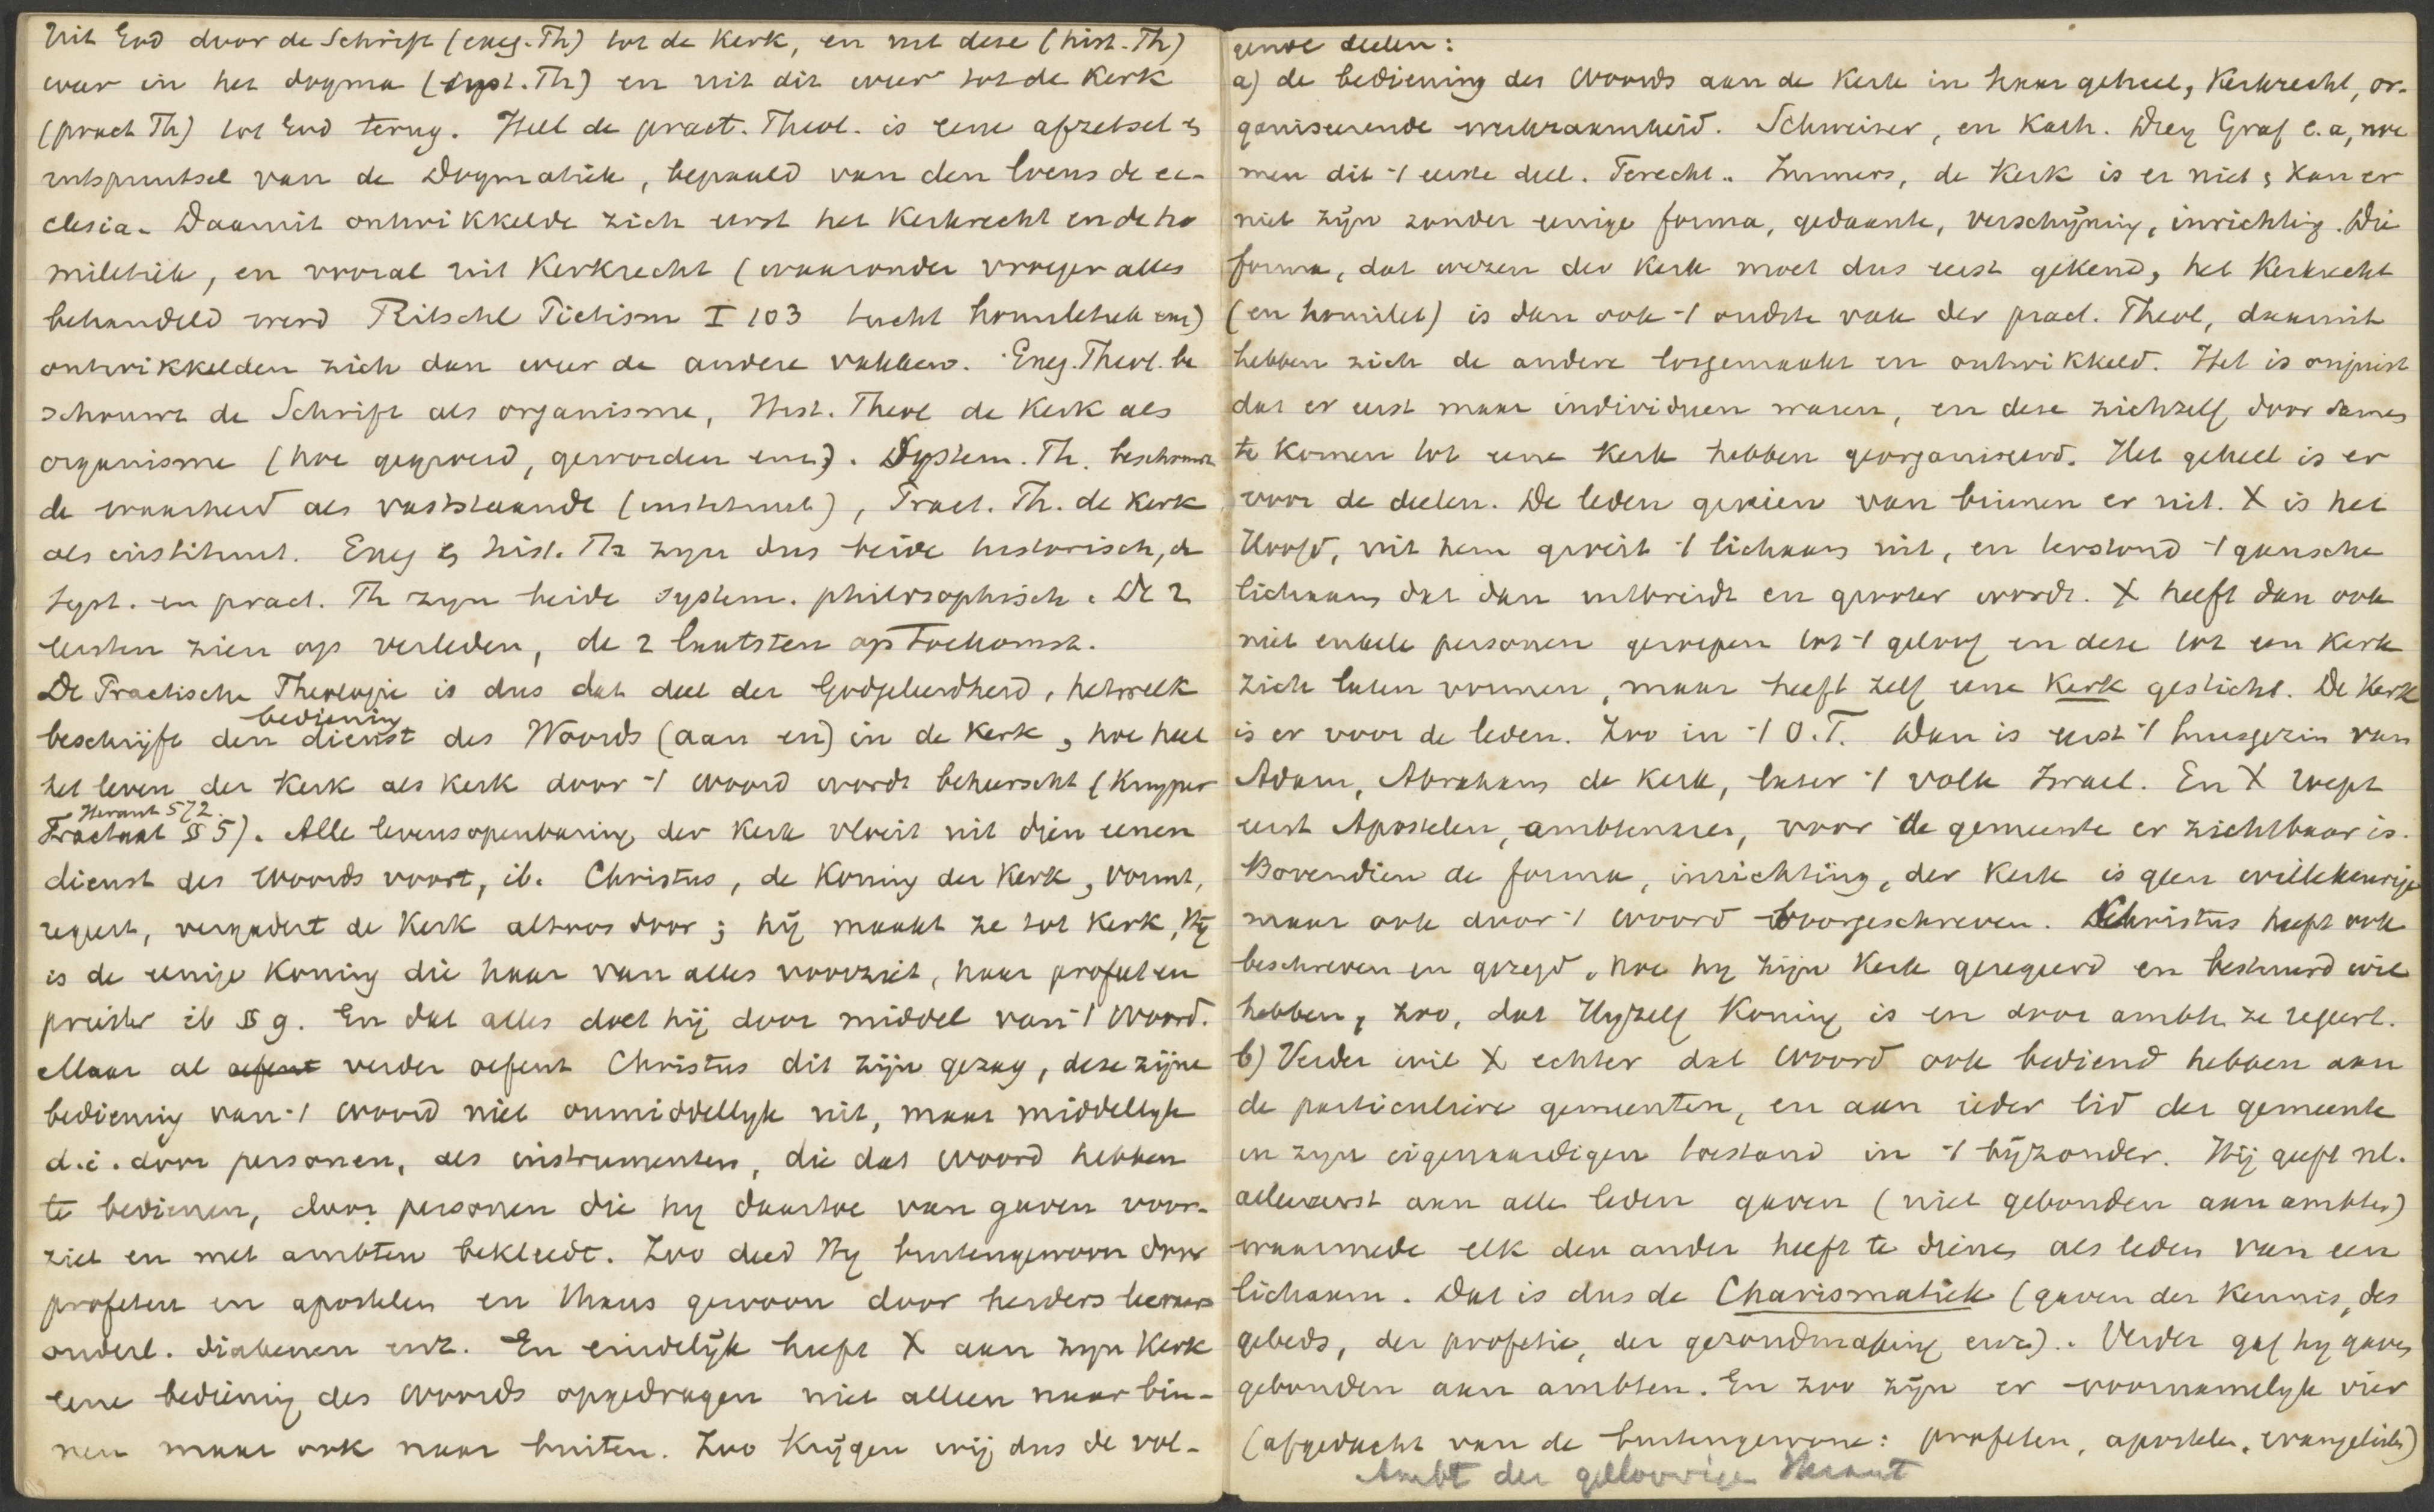 Uit God door de Schrift (exeg. Th) tot de Kerk, en uit deze (hist. Th)
weer in het dogma (syst. Th) en uit dit weer tot de Kerk
(pract Th) tot God terug. Heel de pract. Theol. is eene afzetsel &
uitspruitsel van de Dogmatiek, bepaald van den locus de ec-
clesia. Daaruit ontwikkelde zich eerst het Kerkrecht en de ho
miletiek, en vooral uit Kerkrecht (waaronder vroeger alles
behandeld werd Ritschl Pietism I 103 tucht homiletiek enz)
ontwikkelden zich dan weer de andere vakken. Exeg. Theol. be
schouwt de Schrift als organisme, Hist. Theol de Kerk als
organisme (hoe gegroeid, geworden enz). System. Th. beschouwt
de waarheid als vaststaande (instituut), Pract. Th. de Kerk
als instituut. Exeg & hist. Th zyn dus beide historisch, de
syst. en pract. Th zyn beide system. philosophisch. De 2
eersten zien op verleden, de 2 laatsten op Toekomst.
De Practische Theologie is dus dat deel der Godgeleerdheid, hetwelk
bediening
beschrijft den dienst des Woords (aan en) in de Kerk, hoe heel
het leven der Kerk als kerk door -/ woord wordt beheerscht (Kuyper
Heraut 572.
Tractaat §§ 5). Alle levensopenbaring der Kerk vloeit uit dien eenen
dienst des woords voort, ib. Christus, de Koning der Kerk, vormt,
regeert, vergadert de Kerk altoos door; hij maakt ze tot Kerk, Hy
is de eenige Koning die haar van alles voorziet, haar profeet en
priester ib §§ 9. En dat alles doet hij door middel van -/ woord.
Maar al oefent verder oefent Christus dit zijn gezag, deze zijne
bediening van -/ woord niet onmiddellyk uit, maar middellyk
d.i. door personen, als instrumenten, die dat woord hebben
te bedienen, door personen die hy daartoe van gaven voor-
ziet en met ambten bekleedt. Zoo deed Hy buitengewoon door
profeten en apostelen en thans gewoon door herders leeraars
ouderl. diakenen enz. En eindelijk heeft X aan zyn Kerk
eene bediening des woords opgedragen niet alleen naar bin-
nen maar ook naar buiten. Zoo krijgen wij dus de vol-
gende deelen:
a) de bediening des woords aan de Kerk in haar geheel, Kerkrecht, or-
ganiseerende werkzaamheid. Schweizer, en Kath. Drey Graf e.a, noe
men dit -/ eerste deel. Terecht. Immers, de Kerk is er niet & kan er
niet zijn zonder eenige forma, gedaante, verschijning, inrichting. Die
forma, dat wezen der Kerk moet dus eerst gekend, het Kerkrecht
(en homilet) is dan ook -/ oudste vak der pract. Theol, daaruit
hebben zich de andere losgemaakt en ontwikkeld. Het is onjuist
dat er eerst maar individuen waren, en deze zichzelf door samen
te komen tot eene Kerk hebben georganiseerd. Het geheel is er
voor de deelen. De leden groeien van binnen er uit. X is het
Hoofd, uit hem groeit -/ lichaam uit, en terstond -/ gansche
lichaam dat dan uitbreidt en grooter wordt. X heeft dan ook
niet enkele personen geroepen tot -/ geloof en deze tot een Kerk
zich laten vormen, maar heeft zelf eene Kerk gesticht. De Kerk
is er voor de leden. Zoo in -/ O.T. Dan is eerst -/ huisgezin van
Adam, Abraham de Kerk, later -/ volk Israel. En X roept
eerst Apostelen, ambtenaren, voor de gemeente er zichtbaar is.
Bovendien de forma, inrichting, der Kerk is geen willekeurige
maar ook door -/ woord voorgeschreven. Christus heeft ook
beschreven en gezegd, hoe hy zijn Kerk geregeerd en bestuurd wil
hebben, zoo, dat Hyzelf Koning is en door ambten ze regeert.
b) Verder wil X echter dat woord ook bediend hebben aan
de particuliere gemeenten, en aan ieder lid der gemeente
in zyn eigenaardigen toestand in -/ bijzonder. Hij geeft nl.
allereerst aan alle leden gaven (niet gebonden aan ambten)
waarmede elk den ander heeft te dienen als leden van een
lichaam. Dat is dus de Charismatiek (gaven der kennis, des
gebeds, der profetie, der gezondmaking enz). Verder gaf hy gaven
gebonden aan ambten. En zoo zijn er voornamelyk vier
(afgedacht van de buitengewone: profeten, apostelen, evangelisten)
Ambt der geloovigen Heraut